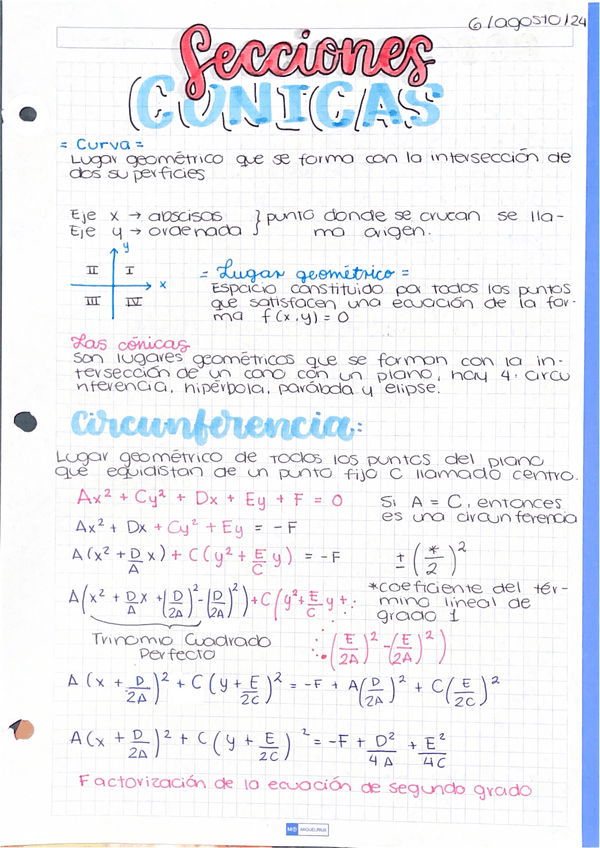 6/agosto/24
Secciones
CÓNICAS
= Curva =
Lugar geométrico que se forma con la intersección de
dos superficies
Eje x → abscisas } punto donde se cruzan se lla-
Eje y → ordenada } ma origen.
y
II I
x
III IV
= Lugar geométrico =
Espacio constituido por todos los puntos
que satisfacen una ecuación de la for-
ma f(x,y) = 0
Las cónicas
Son lugares geométricos que se forman con la in-
tersección de un cono con un plano, hay 4: circu
nferencia, hipérbola, parábola y elipse.
Circunferencia:
Lugar geométrico de todos los puntos del plano
que equidistan de un punto fijo C llamado centro.
Ax² + Cy² + Dx + Ey + F = 0
Si A = C, entonces
es una circunferencia
Ax² + Dx + Cy² + Ey = -F
A(x² + D/A x) + C(y² + E/C y) = -F
± (*/2)²
*coeficiente del tér-
mino lineal de
grado 1
A(x² + D/A x + (D/2A)² - (D/2A)²) + C(y² + E/C y + ∴
Trinomio Cuadrado
Perfecto
∴ (E/2A)² - (E/2A)²)
A(x + D/2A)² + C(y + E/2C)² = -F + A(D/2A)² + C(E/2C)²
A(x + D/2A)² + C(y + E/2C)² = -F + D²/4A + E²/4C
Factorización de la ecuación de segundo grado
MR MIQUELRIUS